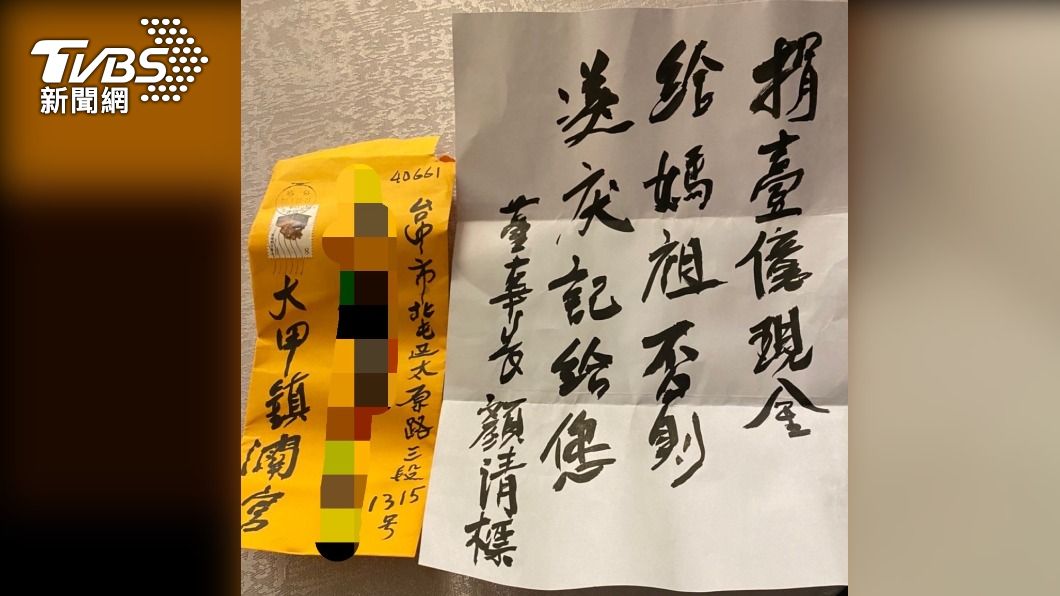 TVBS
新聞網
捐壹億現金
給媽祖否則
記給您
董事長顏清標
40661
台中市北屯区太原路三段
1315号
大甲鎮瀾宮